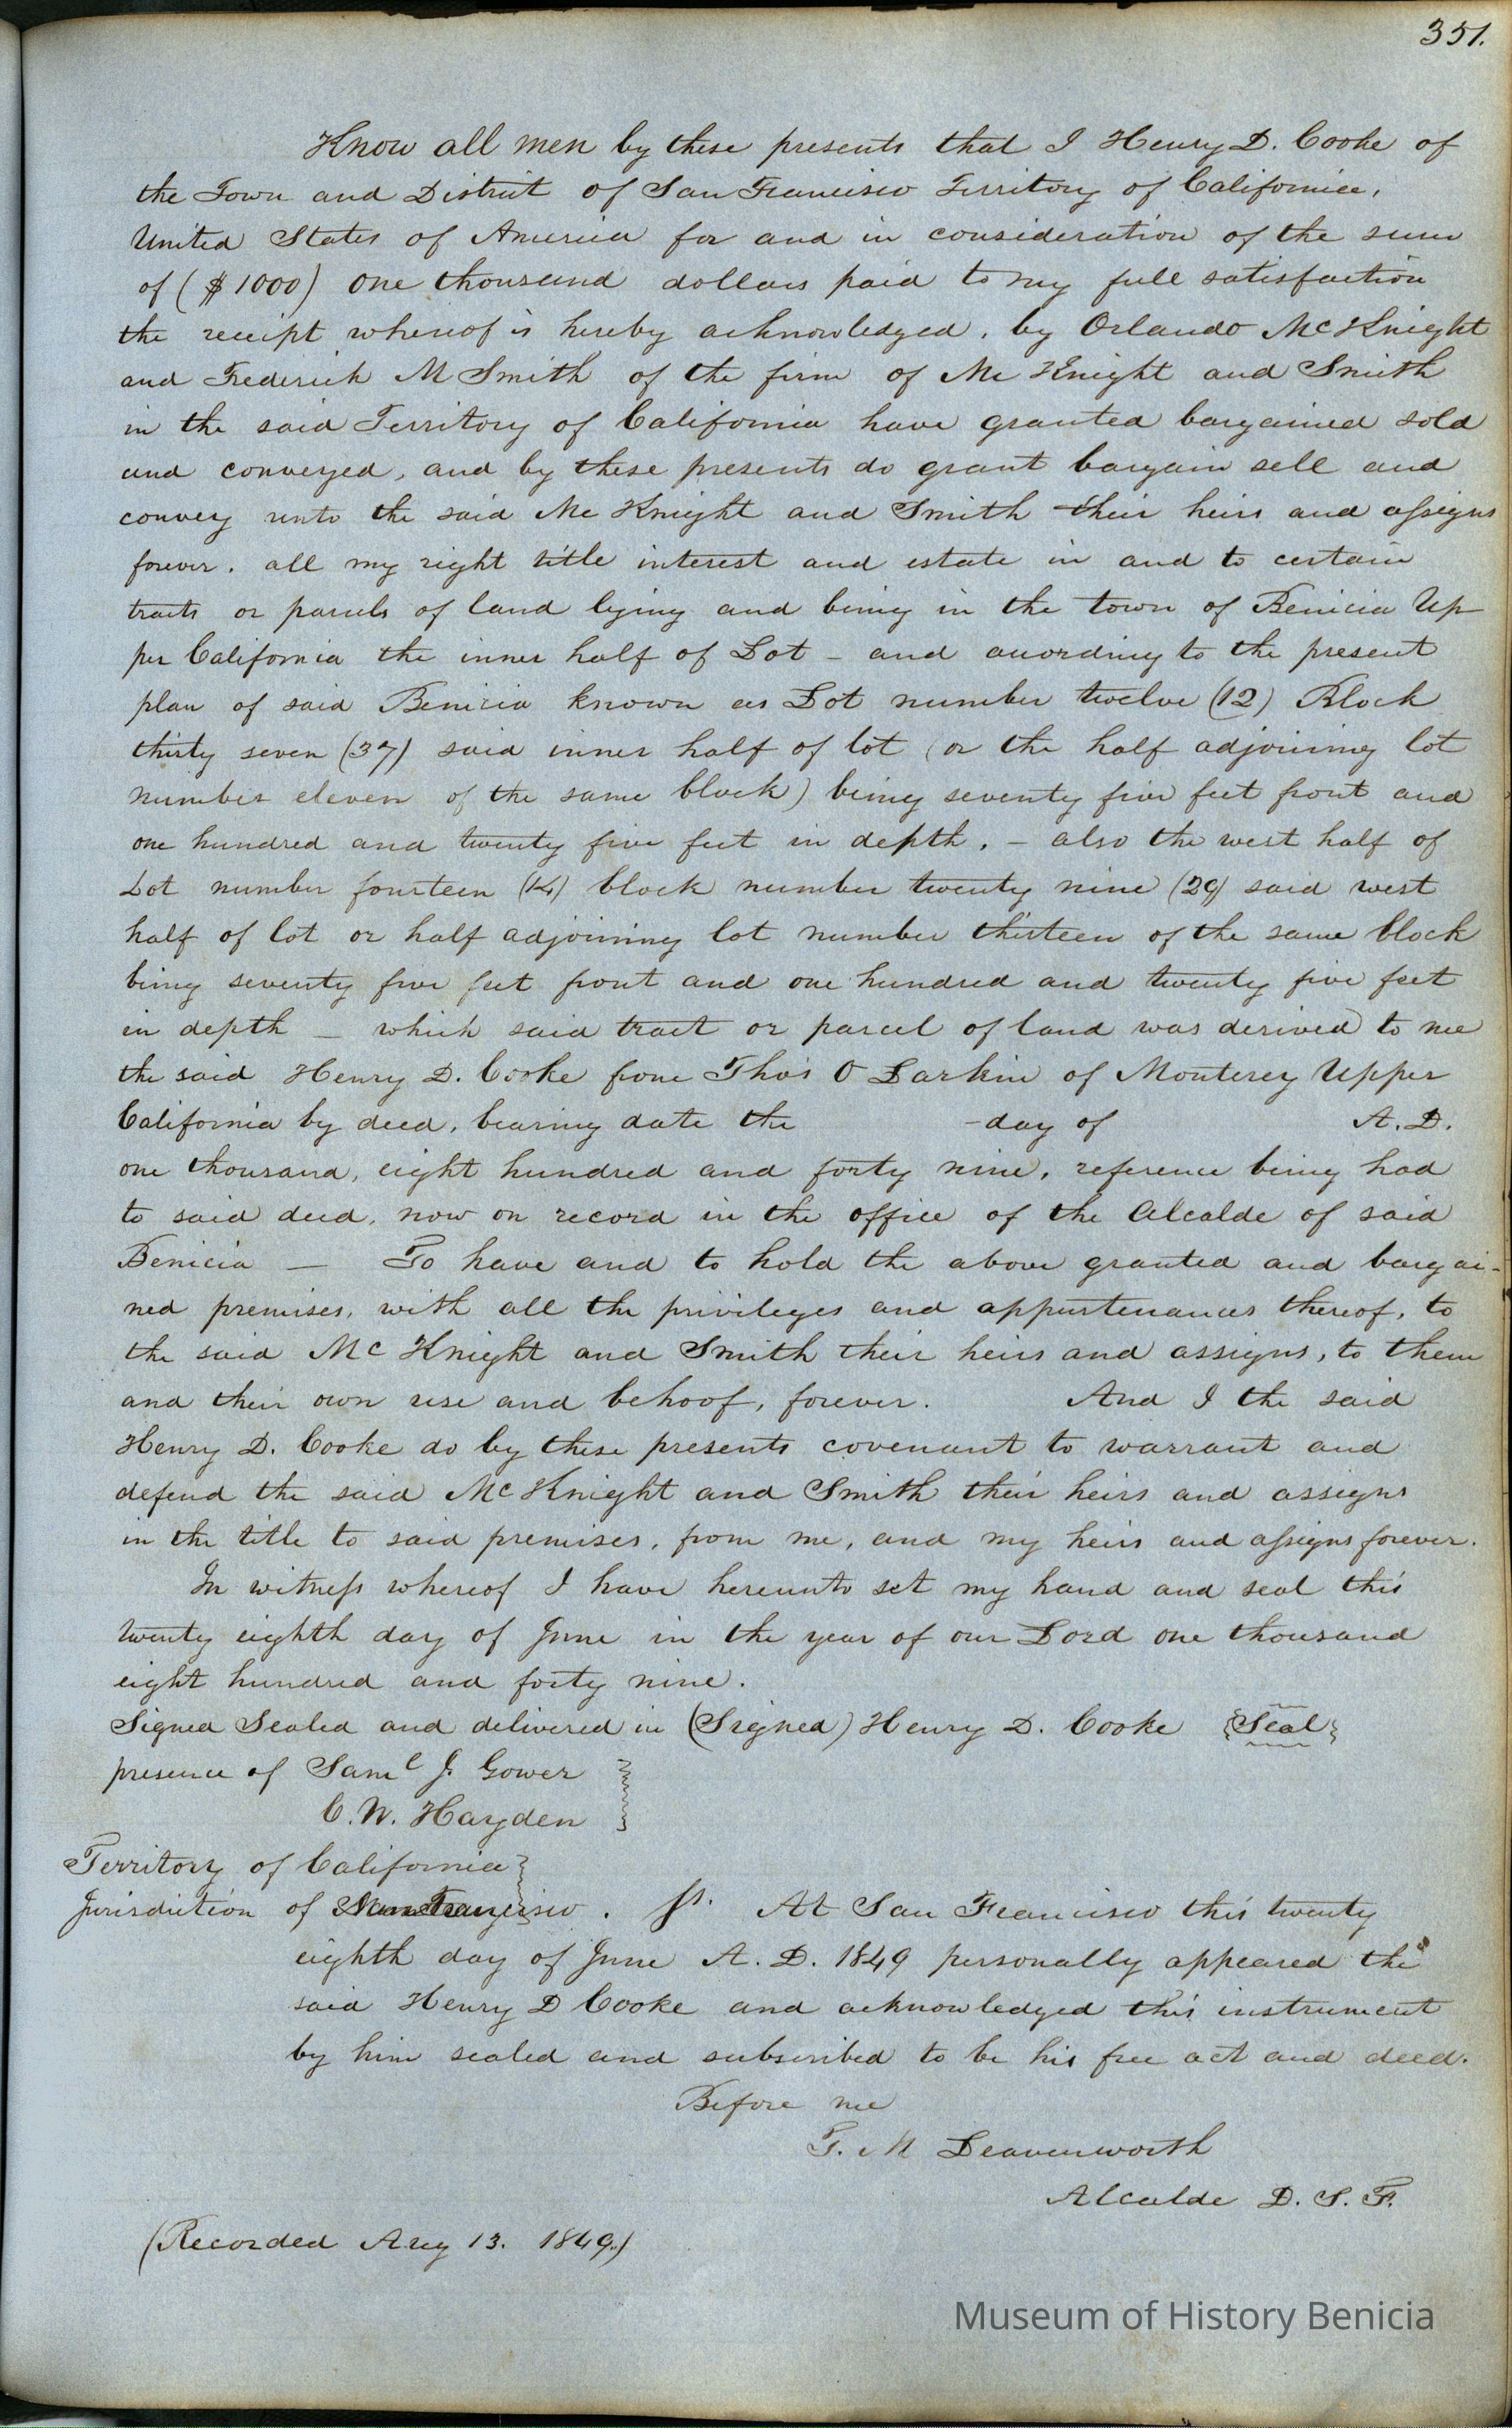 351.
Know all men by these presents that I Henry D. Cooke of
the Town and District of San Francisco Territory of California,
United States of America for and in consideration of the sum
of ($1000) one thousand dollars paid to my full satisfaction
the receipt whereof is hereby acknowledged, by Orlando McKnight
and Frederick M Smith of the firm of Mc Knight and Smith
in the said Territory of California have granted bargained sold
and conveyed, and by these presents do grant bargain sell and
convey unto the said Mc Knight and Smith their heirs and assigns
forever. all my right title interest and estate in and to certain
tracts or parcels of land lying and being in the town of Benicia Up
per California the inner half of Lot – and according to the present
plan of said Benicia known as Lot number twelve (12) Block
thirty seven (37) said inner half of lot (or the half adjoining lot
number eleven of the same block) being seventy five feet front and
one hundred and twenty five feet in depth. – also the west half of
Lot number fourteen (14) block number twenty nine (29) said west
half of lot or half adjoining lot number thirteen of the same block
being seventy five feet front and one hundred and twenty five feet
in depth – which said tract or parcel of land was derived to me
the said Henry D. Cooke from Thos O Larkin of Monterey Upper
California by deed, bearing date the –day of A.D.
one thousand, eight hundred and forty nine, reference being had
to said deed, now on record in the office of the Alcalde of said
Benicia — To have and to hold the above granted and bargai-
ned premises, with all the privileges and appurtenances thereof, to
the said Mc Knight and Smith their heirs and assigns, to them
and their own use and behoof, forever. And I the said
Henry D. Cooke do by these presents covenant to warrant and
defend the said McKnight and Smith their heirs and assigns
in the title to said premises, from me, and my heirs and assigns forever.
In witness whereof I have hereunto set my hand and seal this
twenty eighth day of June in the year of our Lord one thousand
eight hundred and forty nine.
Signed Sealed and delivered in (Signed) Henry D. Cooke {Seal}
presence of Saml J. Gower
C. W. Hayden
Territory of California
Jurisdiction of San Francisco . ss. At San Francisco this twenty
eighth day of June A. D. 1849 personally appeared the
said Henry D Cooke and acknowledged this instrument
by him sealed and subscribed to be his free act and deed.
Before me
T. M Leavenworth
Alcalde D. S. F.
(Recorded Aug 13. 1849.)
Museum of History Benicia